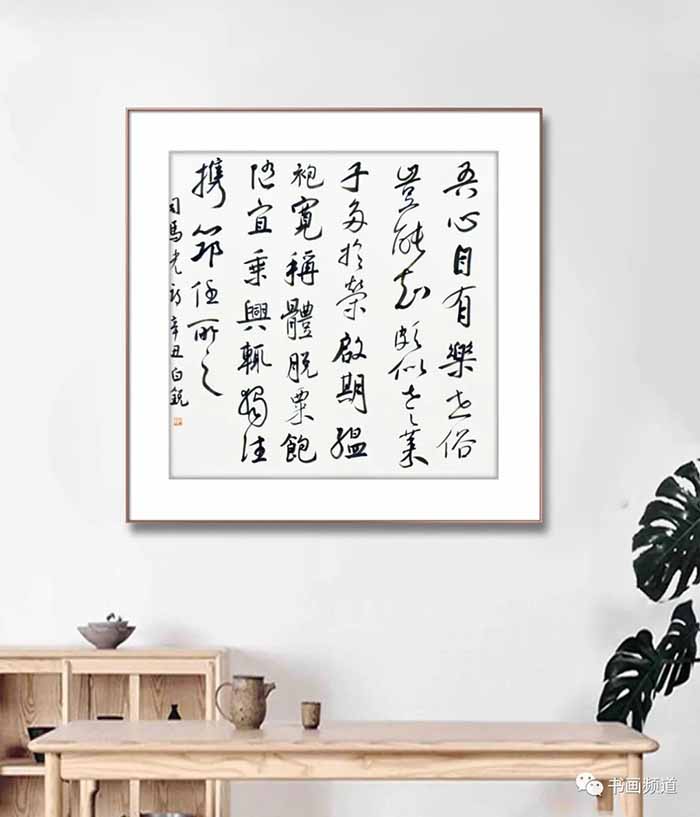 吾心自有樂世俗
豈能知頗似老萊
子多於榮啟期縕
袍寬稱體脫粟飽
随宜乘興輒獨往
携筇任所之
司馬光诗辛丑白銳
书画频道